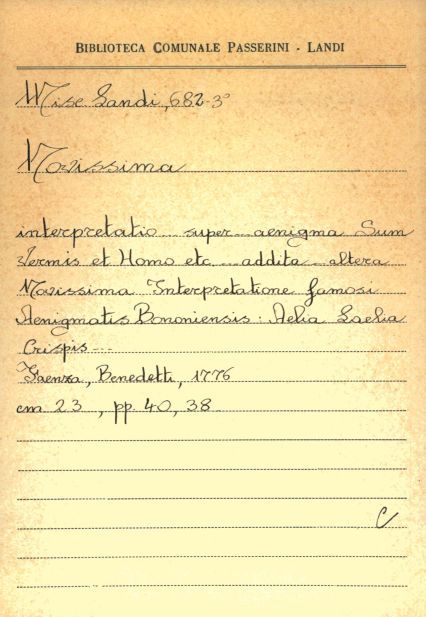 BIBLIOTECA COMUNALE PASSERINI - LANDI
Misc Landi, 682-3°
Novissima
interpretatio... super... aenigma Sum
Vermis et Homo etc... addita... altera
Novissima Interpretatione famosi
Aenigmatis Bononiensis: Aelia Laelia
Crispis...
Faenza, Benedetti, 1776
cm 23, pp. 40, 38
C